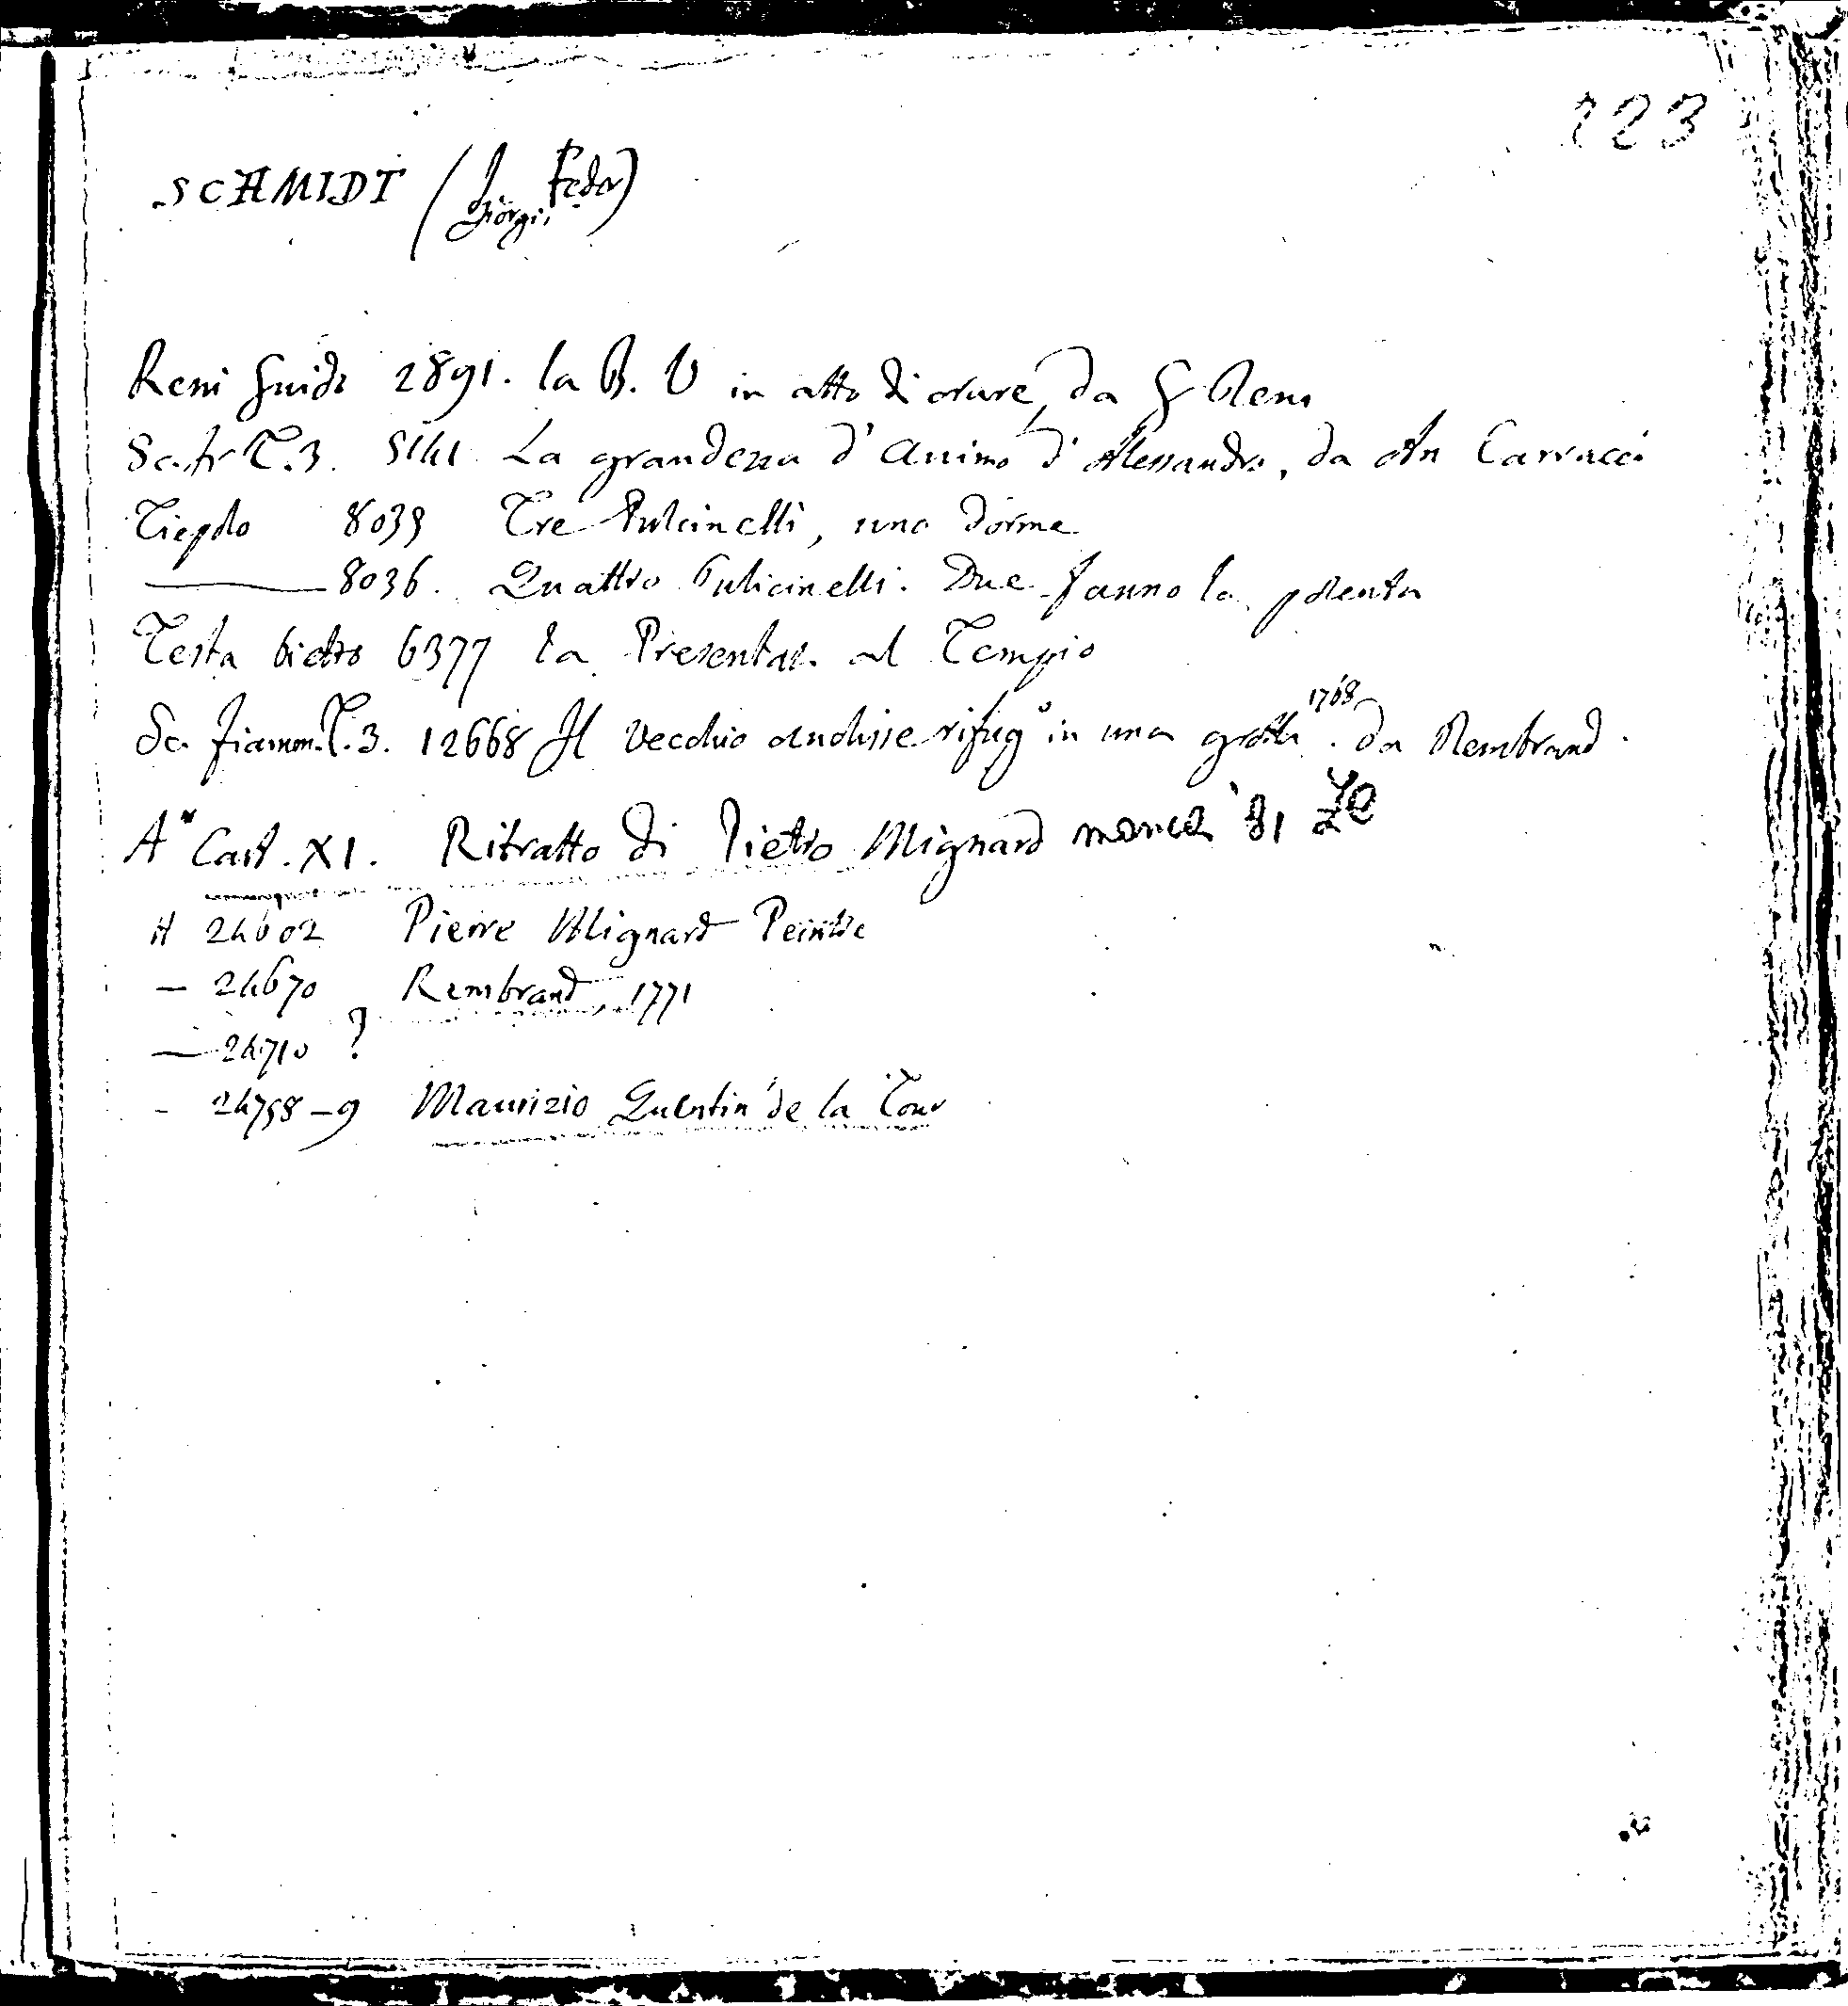 223
SCHMIDT (Giorgio Feder)
Reni Guido 2891. la B. V in atto di orare, da G Reni
Sc. fr T. 3. 5141 La grandezza d'animo d'Alessandro, da An Carracci
Tiepolo 8039 Tre Pulcinelli, uno dorme
8036. Quattro Pulicinelli. Due fanno la polenta
Testa Pietro 6377 la Presentaz. al Tempio
Sc. Fiamm. T. 3. 12668 Il Vecchio rifug° in una grotta. 1768 da Rembrand.
A* Cart. XI. Ritratto di Pietro Mignard
H 24602 Pierre Mignard Peintre
— 24670 Rembrand 1771
— 24710 ?
- 24758-9 Maurizio Quentin de la Tour